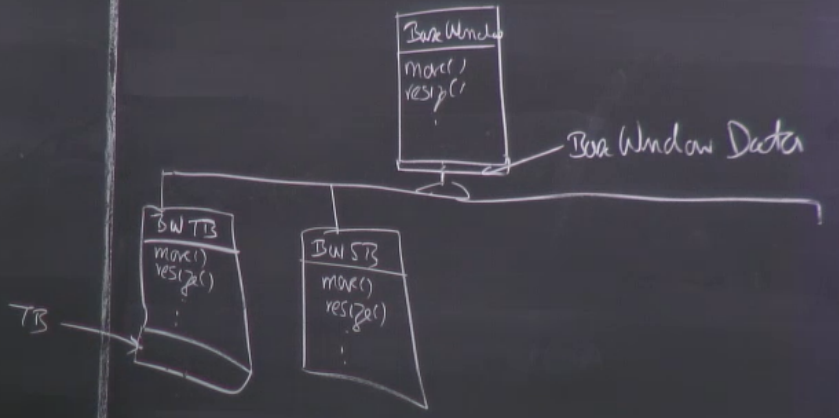 Base Window
move()
resize()
Base Window Data
BW TB
move()
resize()
BW SB
move()
resize()
TB